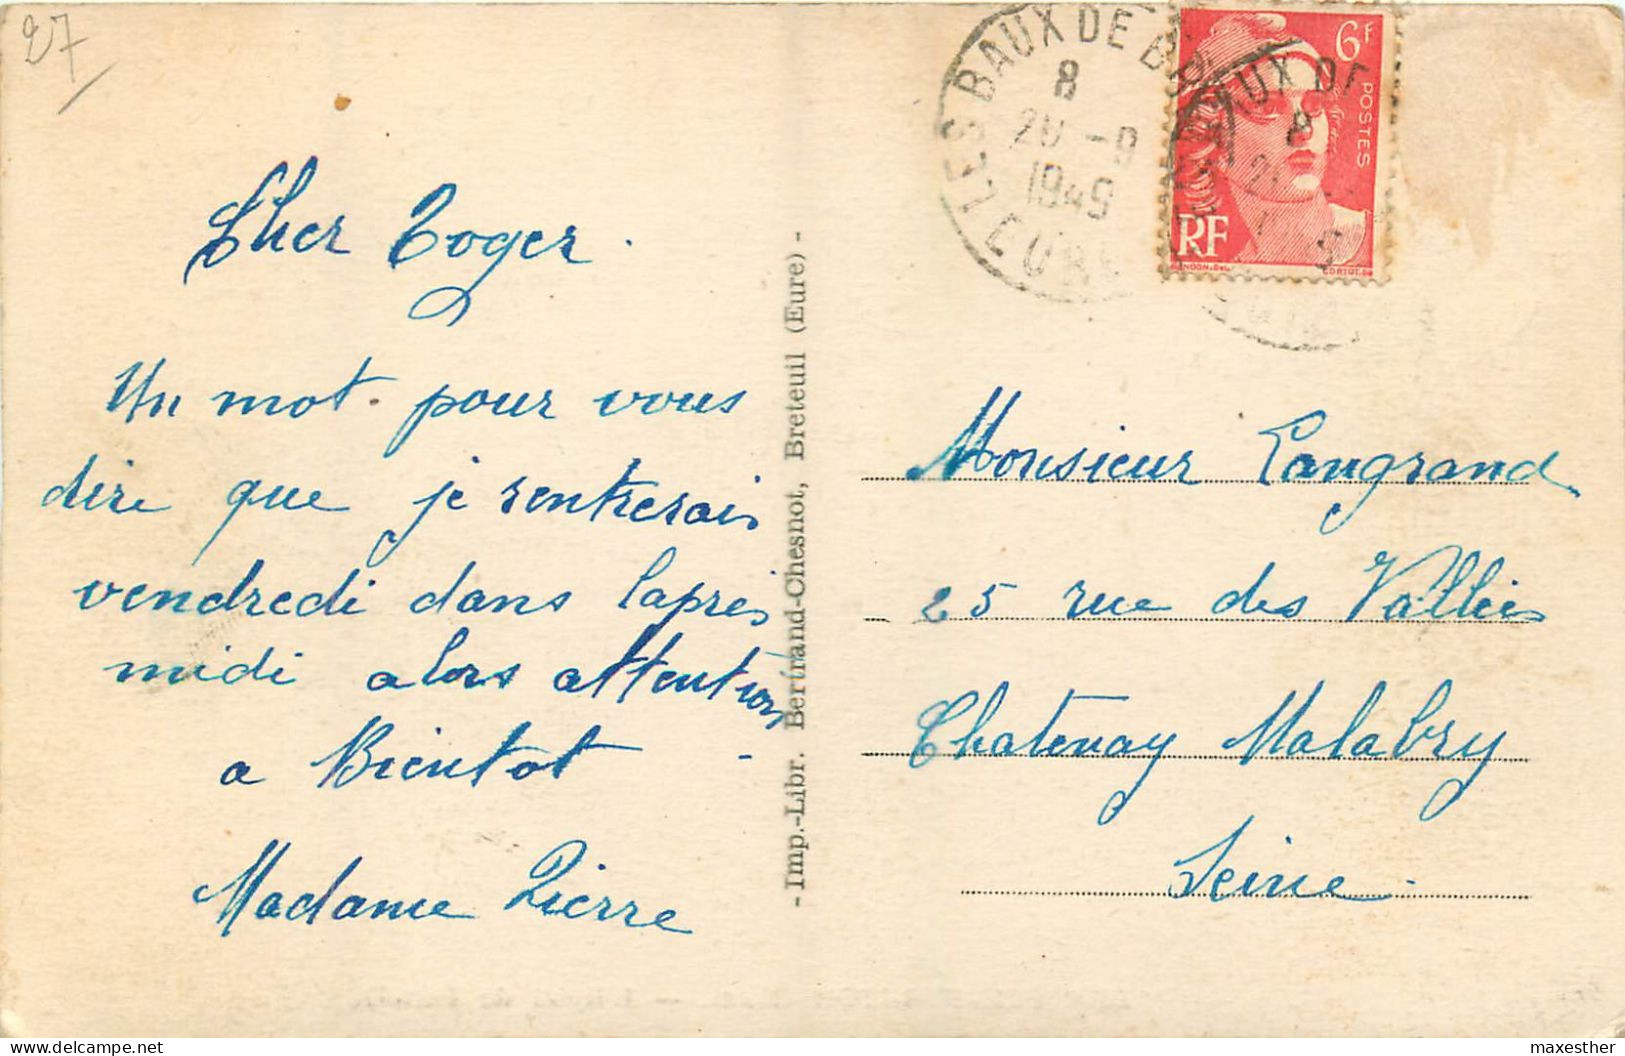 27
Cher Roger.
Un mot pour vous
dire que je rentrerais
vendredi dans lapres
midi alors attention
a Bientot -
Madame Pierre
- Imp.-Libr. Bertrand-Chesnot, Breteuil (Eure) -
LES BAUX DE BR
8
20 -9
1949
EURE
6F
POSTES
RF
GANDON.DEL
CORTOT.SC
UX DE
8
2
Monsieur Langrand
25 rue des Vallées
Chatenay Malabry
Seine.
maxesther